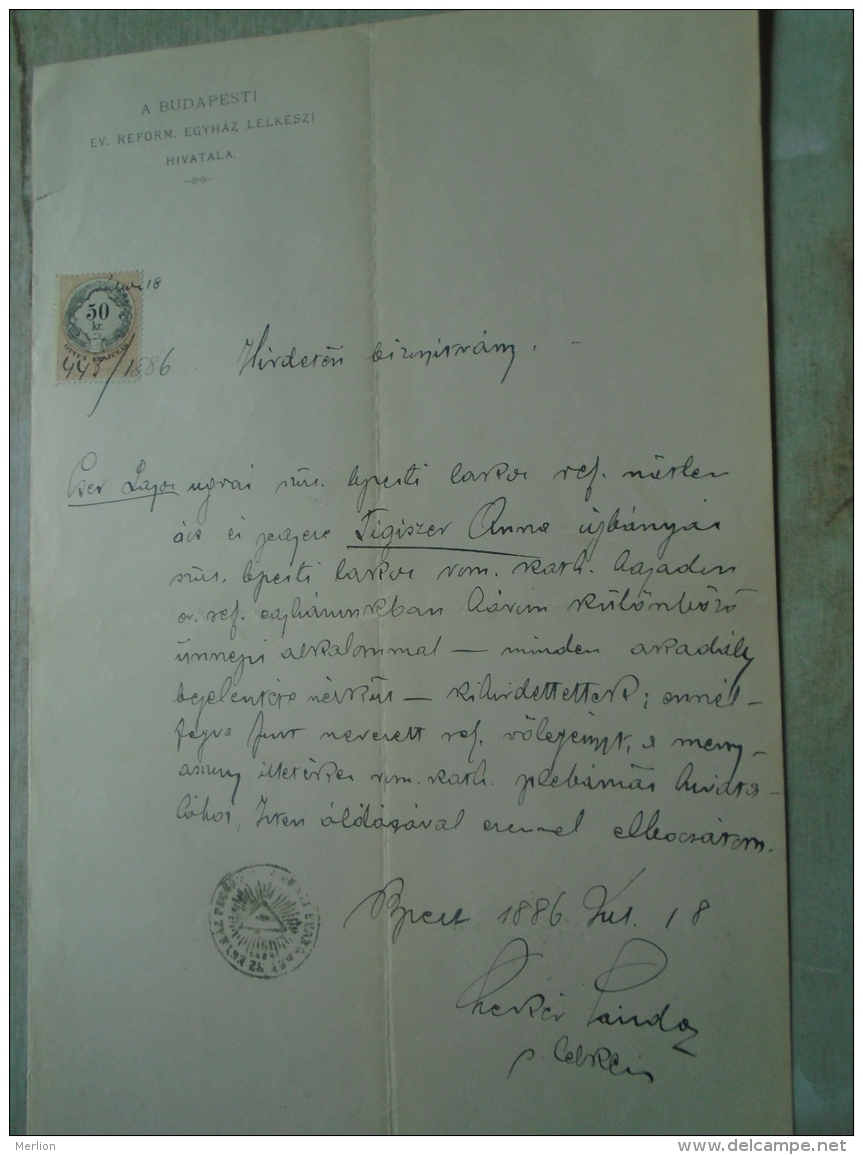 A BUDAPESTI
EV. REFORM. EGYHÁZ LELKÉSZI
HIVATALA.
18
50
kr.
443/1886
Hirdetési bizonyitvány.
Cser Lajos ugrai szül. bpesti lakos ref. nőtlen
ács és jegyese Figiszer Anna újbányai
szül. bpesti lakos rom. kath. hajadon
ev. ref. egyházunkban három különböző
ünnepi alkalommal — minden akadály
bejelentése nélkül — kihirdettettek; ennél-
fogva fent nevezett ref. vőlegényt, a meny-
asszony illetékes rom. kath. plebániás hivata-
lához, Isten áldásával ezennel elbocsátom.
Bpest 1886. Jul. 18
Sándor
s. lelkész
Merlion
www.delcampe.net